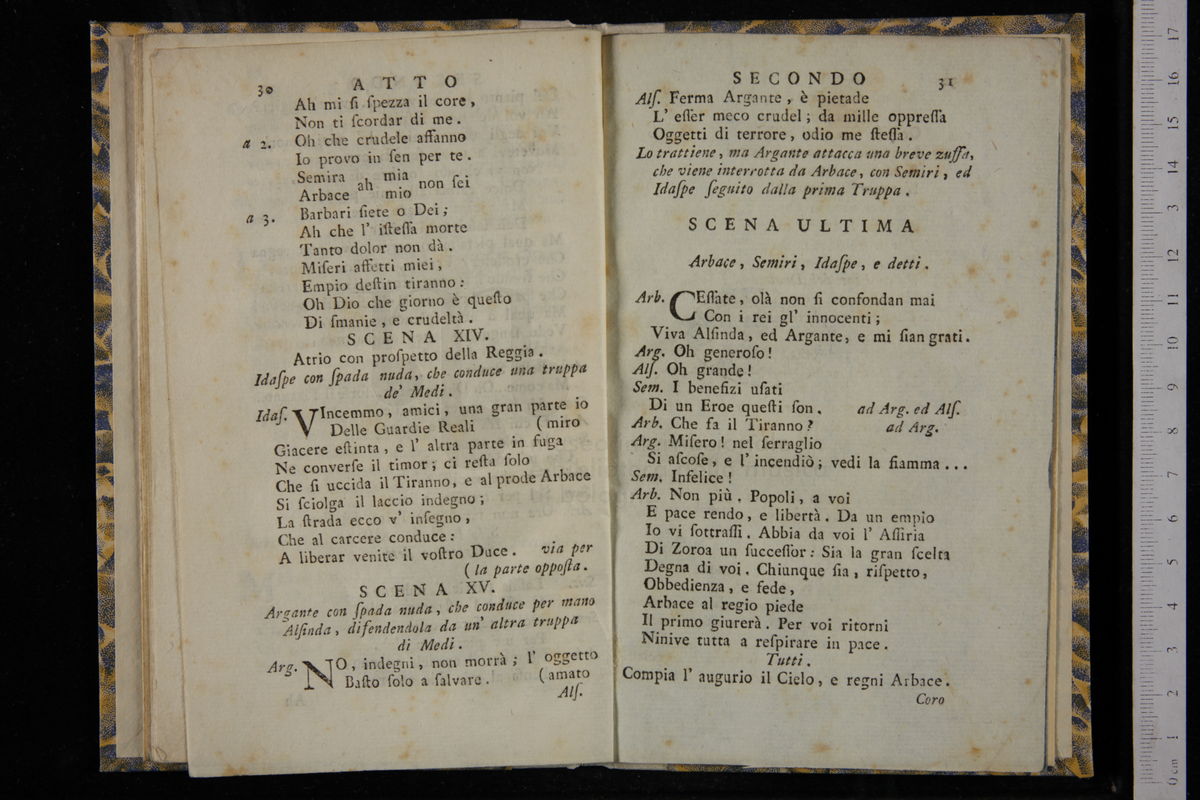 30 ATTO
Ah mi ſi ſpezza il core,
Non ti ſcordar di me.
a 2. Oh che crudele affanno
Io provo in ſen per te.
Semira ah mia non ſei
Arbace mio
a 3. Barbari ſiete o Dei;
Ah che l' iſteſſa morte
Tanto dolor non dà.
Miſeri affetti miei,
Empio deſtin tiranno:
Oh Dio che giorno è queſto
Di ſmanie, e crudeltà.
SCENA XIV.
Atrio con proſpetto della Reggia.
Idaſpe con ſpada nuda, che conduce una truppa
de' Medi.
Idaſ. VIncemmo, amici, una gran parte io
Delle Guardie Reali (miro
Giacere eſtinta, e l' altra parte in fuga
Ne converſe il timor; ci reſta ſolo
Che ſi uccida il Tiranno, e al prode Arbace
Si ſciolga il laccio indegno;
La ſtrada ecco v' inſegno,
Che al carcere conduce:
A liberar venite il voſtro Duce. via per
(la parte oppoſta.
SCENA XV.
Argante con ſpada nuda, che conduce per mano
Alſinda, difendendola da un' altra truppa
di Medi.
Arg. NO, indegni, non morrà; l' oggetto
Baſto ſolo a ſalvare. (amato
Alſ.
SECONDO 31
Alſ. Ferma Argante, è pietade
L' eſſer meco crudel; da mille oppreſſa
Oggetti di terrore, odio me ſteſſa.
Lo trattiene, ma Argante attacca una breve zuffa,
che viene interrotta da Arbace, con Semiri, ed
Idaſpe ſeguito dalla prima Truppa.
SCENA ULTIMA
Arbace, Semiri, Idaſpe, e detti.
Arb. CEſſate, olà non ſi confondan mai
Con i rei gl' innocenti;
Viva Alſinda, ed Argante, e mi ſian grati.
Arg. Oh generoſo!
Alſ. Oh grande!
Sem. I benefizi uſati
Di un Eroe queſti ſon. ad Arg. ed Alſ.
Arb. Che fa il Tiranno? ad Arg.
Arg. Miſero! nel ſerraglio
Si aſcoſe, e l' incendiò; vedi la fiamma...
Sem. Infelice!
Arb. Non più. Popoli, a voi
E pace rendo, e libertà. Da un empio
Io vi ſottraſſi. Abbia da voi l' Aſſiria
Di Zoroa un ſucceſſor: Sia la gran ſcelta
Degna di voi. Chiunque ſia, riſpetto,
Obbedienza, e fede,
Arbace al regio piede
Il primo giurerà. Per voi ritorni
Ninive tutta a reſpirare in pace.
Tutti.
Compia l' augurio il Cielo, e regni Arbace.
Coro
0 cm 1 2 3 4 5 6 7 8 9 10 11 12 13 14 15 16 17